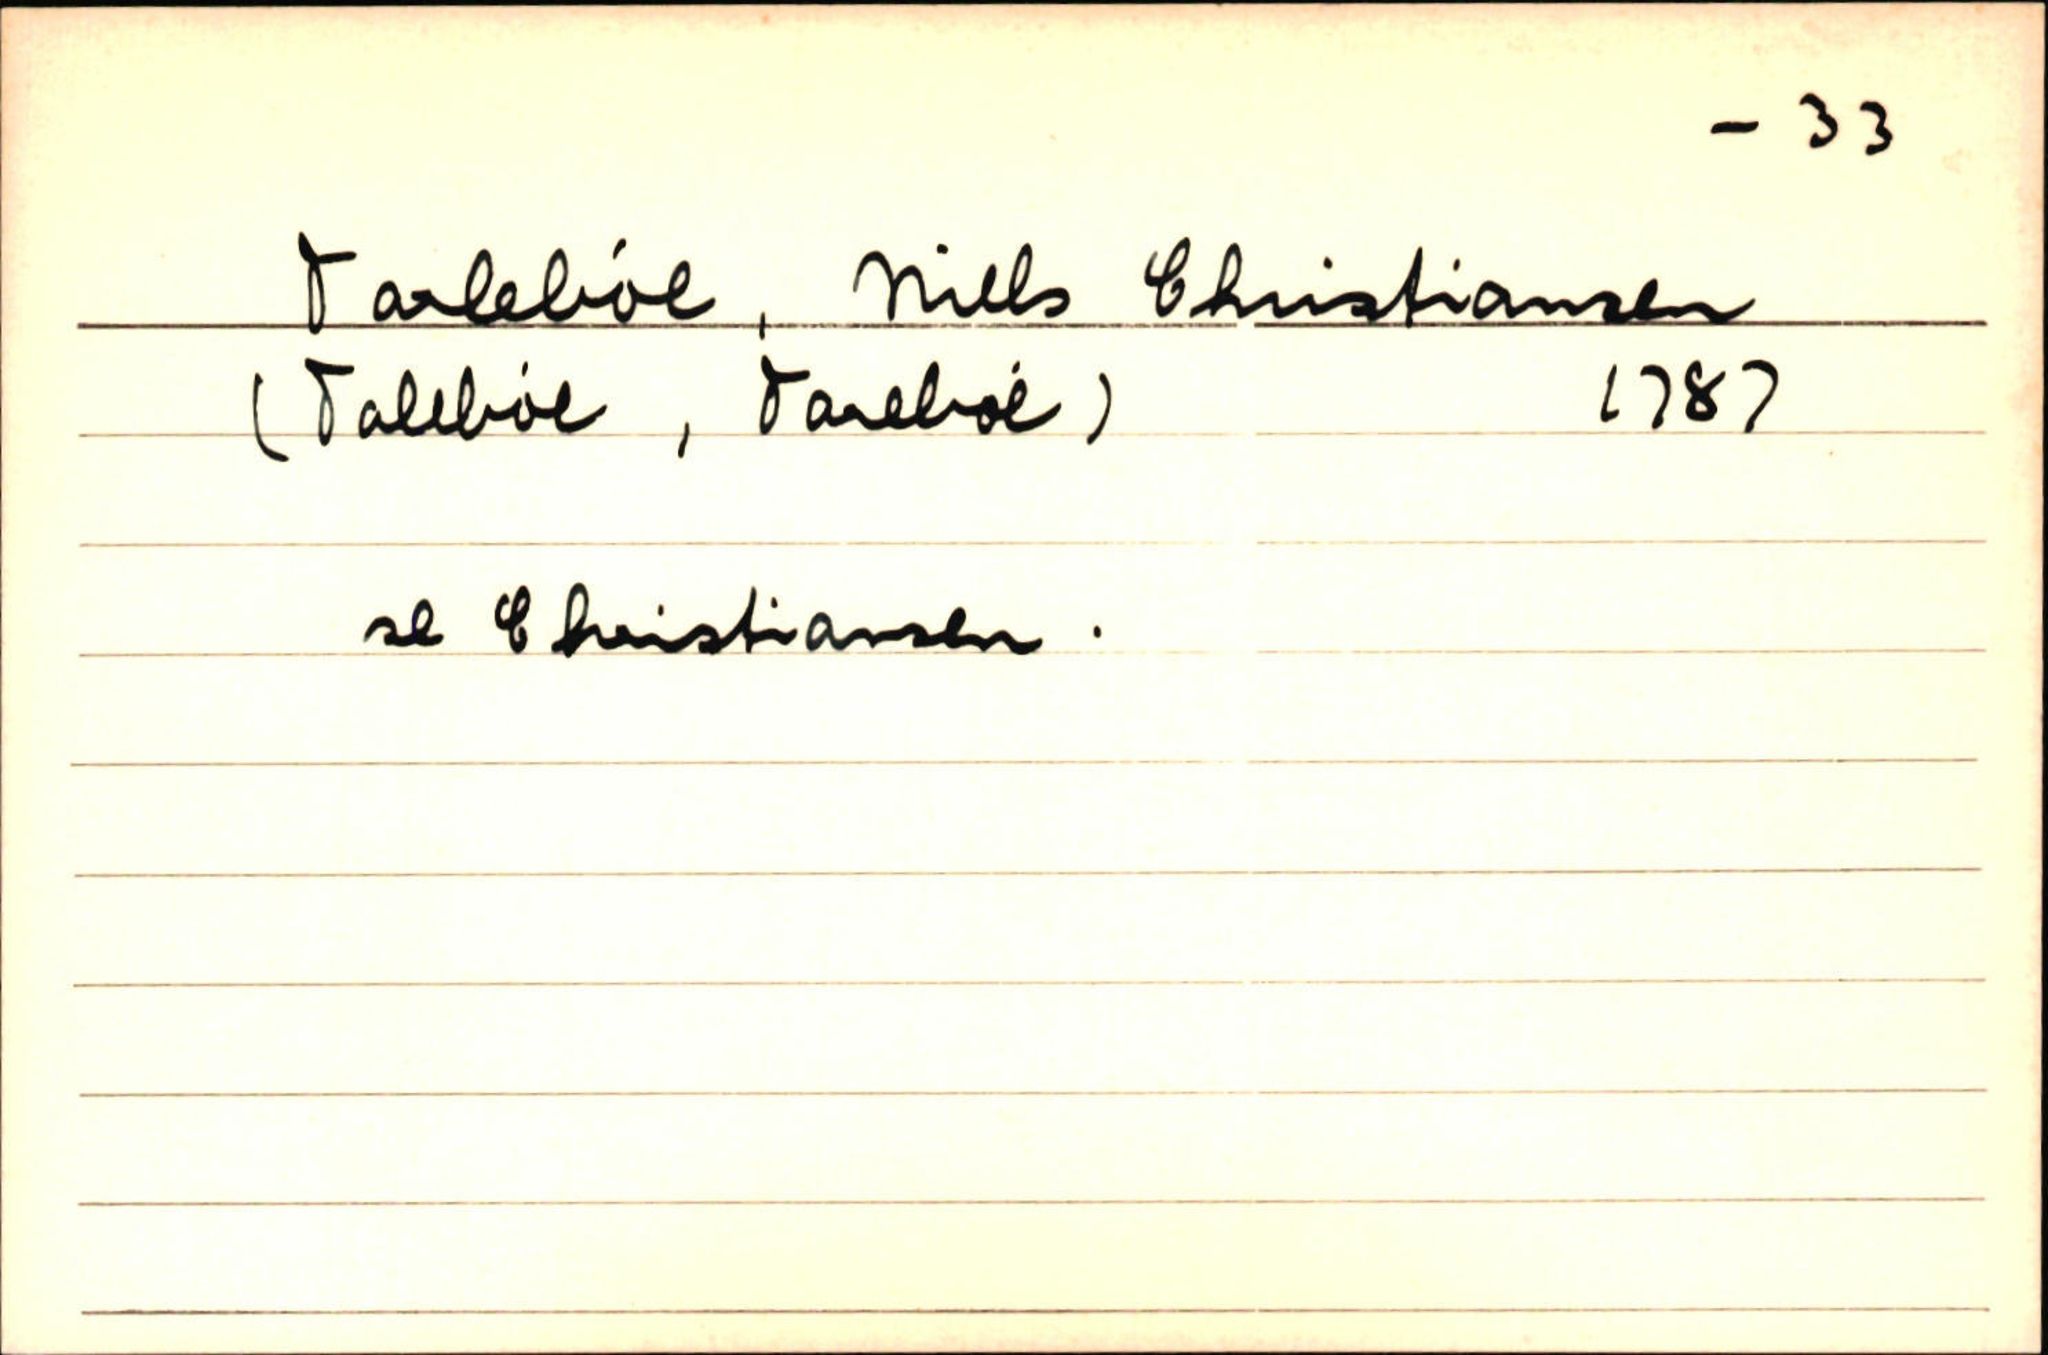 - 33
Tarleböe, Niels Christiansen
(Taleböe, Tareböe) 1787
se Christiansen.